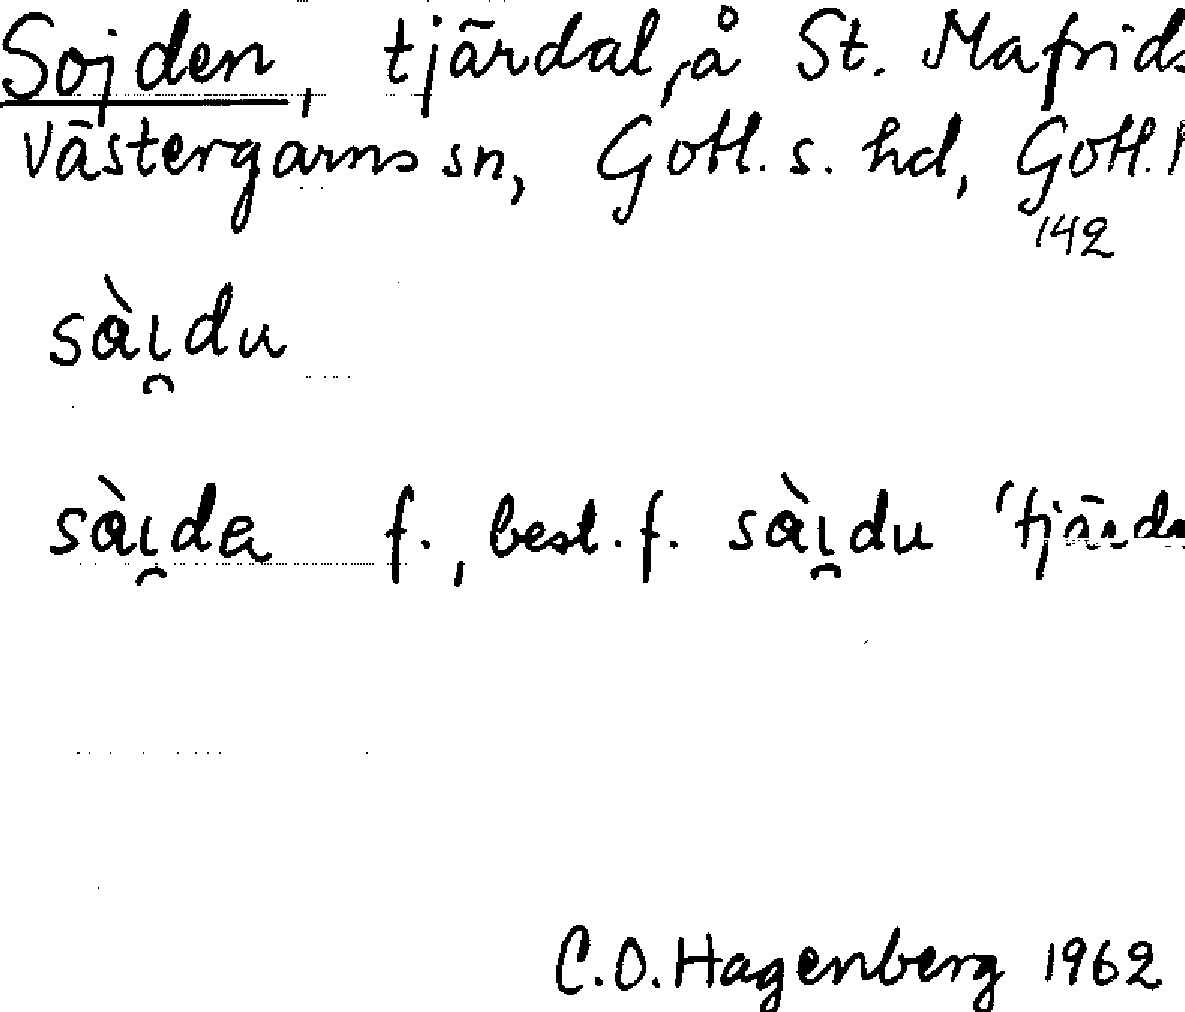 Sojden, tjärdal, å St. Mafrids
Västergarns sn, Gotl. s. hd, Gotl. l
142
sàı̯du
sàı̯da f., best. f. sàı̯du 'tjärda
C.O. Hagenberg 1962